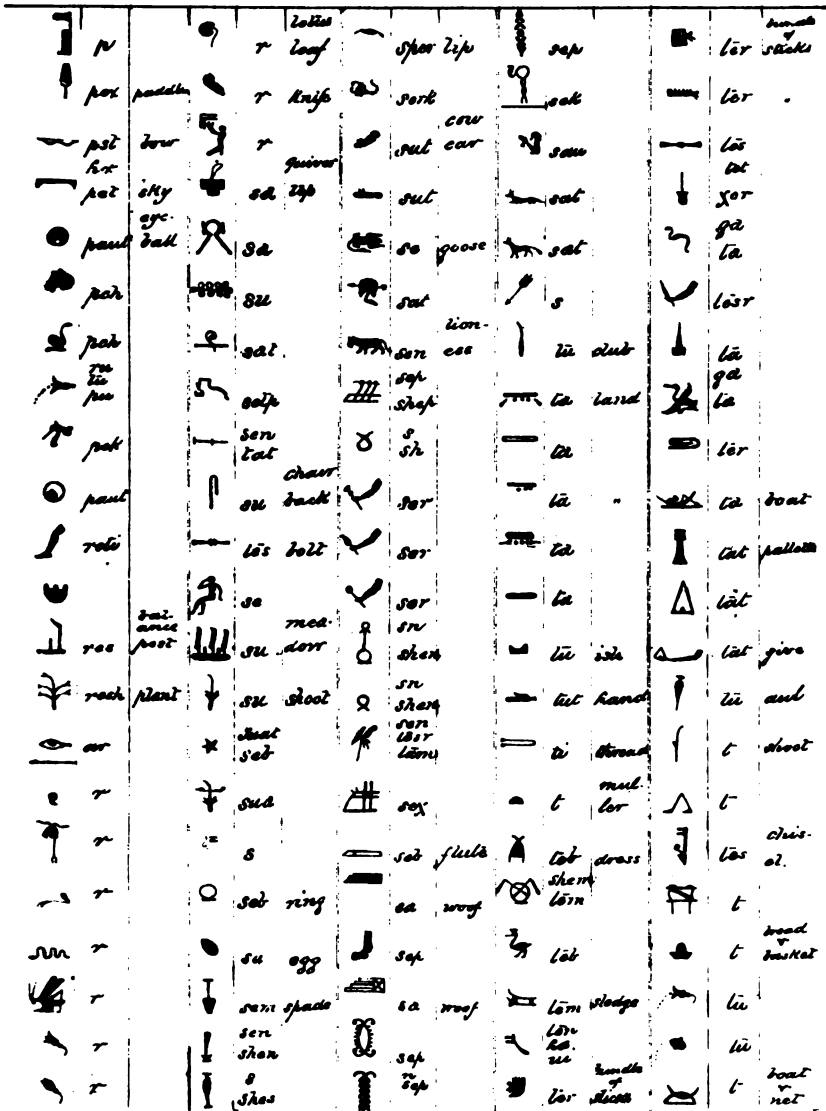 p
pex paddle
pst bow
hx
pet sky
paut eye-
ball
peh
peh
ru
tū
pu
pek
paut
roti
res bal-
ance
post
rech plant
ar
r
r
r
r
r
r
r
r lotus
leaf
r knife
r
sa quiver
top
sa
su
sat
sotp
sen
tat
su chair
back
tēs bolt
se
su mea-
dow
su shoot
tuat
seb
sua
s
seb ring
su egg
sem spade
sen
shen
s
shes
sper lip
serk
sut cow
ear
sut
se goose
sat
sen lion-
ess
sep
shep
s
sh
ser
ser
ser
sn
shen
sn
shen
sen
tām
sex
seb flute
sa woof
sep
sa woof
sep
n
sep
sep
sek
sau
sat
sat
s
tū dub
ta land
ta
tā "
ta
ta
tū ish
tut hand
ti thread
t mul-
ler
teb dress
shem
tēm
tēb
tēm sledge
tēn
ha
tū
ter bundle
of
sticks
tēr bundle
of
sticks
tēr "
tēs
tet
xer
ga
ta
tēsr
tā
ga
ta
tēr
ta boat
tat pallette
tāt
tāt give
tū awl
t shoot
t
tes chis-
el.
t
t bread
&
basket
tū
tū
t boat
&
net